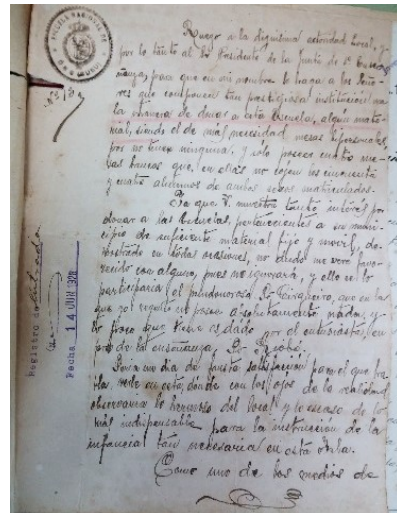 ESCUELA NACIONAL
Ruego a la dignísima autoridad local, y
por lo tanto al Sr. Presidente de la Junta de 1ª Ense-
ñanza, para que en mi nombre lo haga a los Seño-
res que componen tan prestigiosa institución
la de donar a esta Escuela, algún mate-
rial, siendo el de más necesidad mesas bipersonales,
por no tener ninguna, y sólo posee cuatro me-
sas bancos que, en ellas no cojen los cincuenta
y cuatro alumnos de ambos sexos matriculados.
Ya que V. muestra tanto interés por
donar a las Escuelas, pertenecientes a su muni-
cipio de suficiente material fijo y movil, de-
mostrado en todas ocasiones, no dudo me veré favo-
recido con alguno, pues no ignorará, y ello se lo
participará el Sr.
que por regalo no posee absolutamente nada, y
lo poco que tiene es dado por el entusiasta en
pro de la enseñanza, Sr.
Sería un día de justa satisfacción para el que ha-
bla, verle en esta, donde con los ojos de la realidad
observaría lo del local y lo escaso de lo
más indispensable para la instrucción de la
infancia tan necesaria en esta
Como uno de los medios de
Registro de Entrada
Fecha 14 JUN 1928